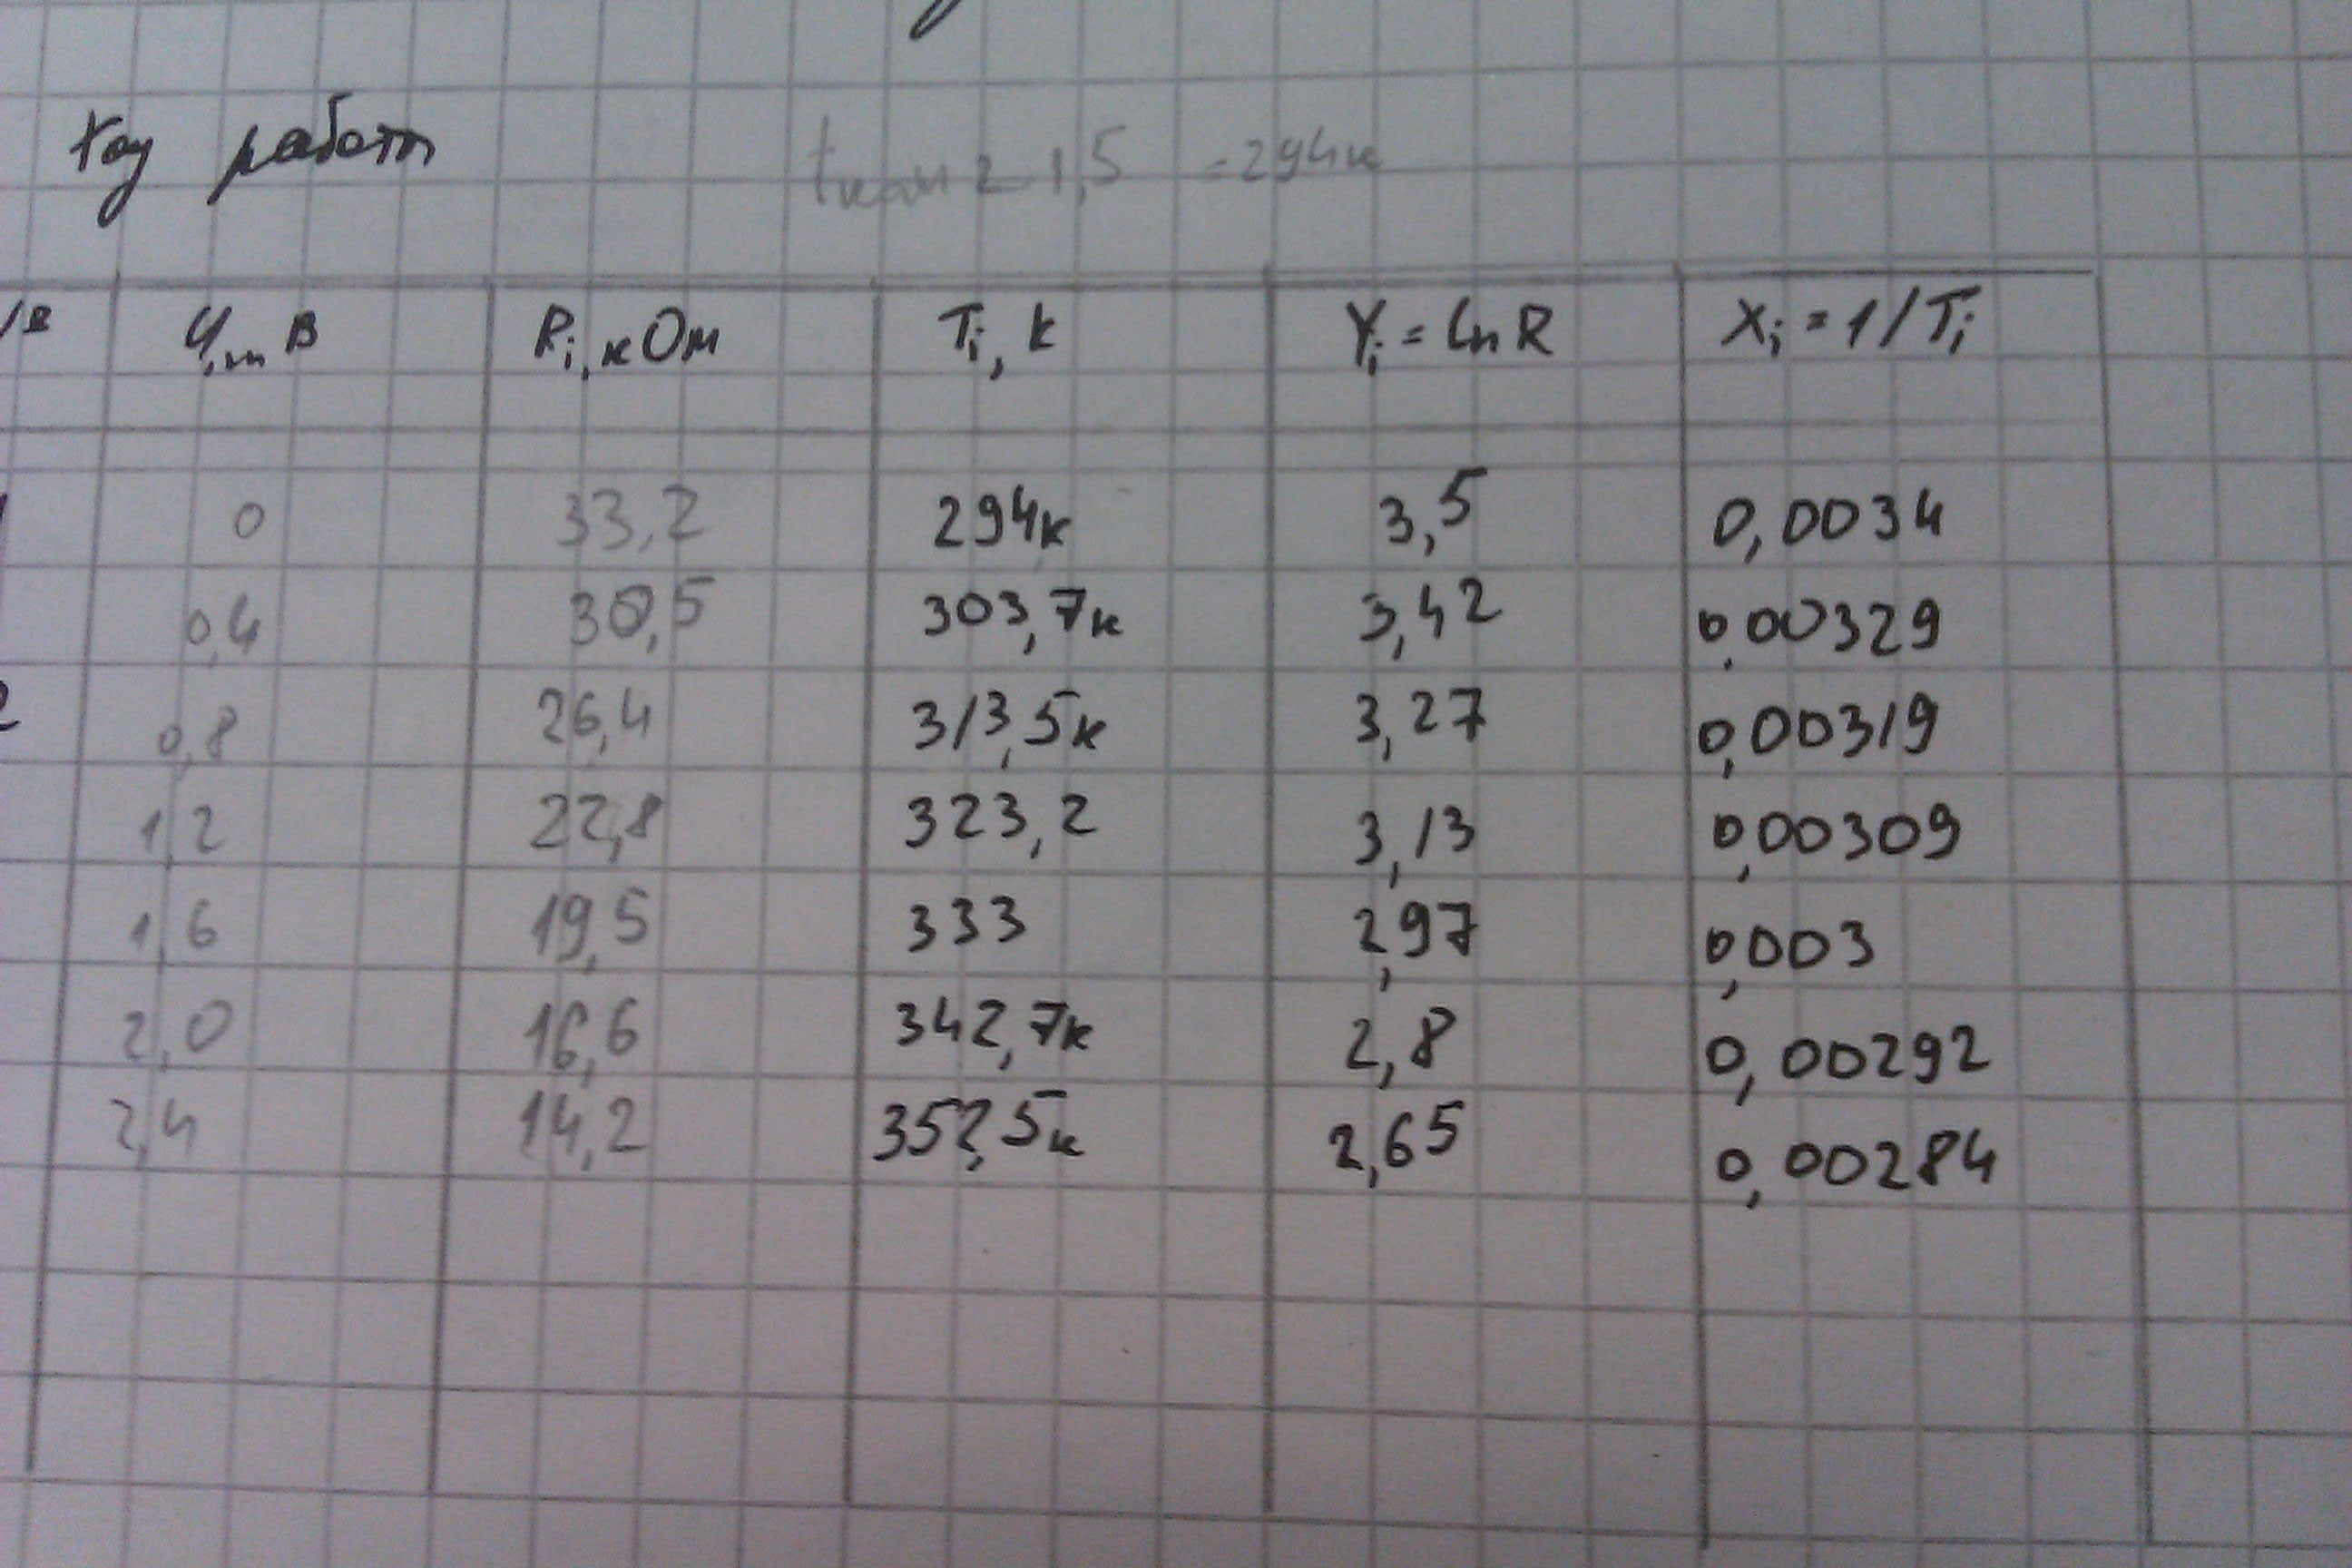 Ход работы
tком = 1,5 = 294к
U, mВ Ri, кОм Ti, k Yi = Ln R Xi = 1/Ti
1 0 33,2 294к 3,5 0,0034
0,4 30,5 303,7к 3,42 0,00329
2 0,8 26,4 313,5к 3,27 0,00319
1,2 22,8 323,2 3,13 0,00309
1,6 19,5 333 2,97 0,003
2,0 16,6 342,7к 2,8 0,00292
2,4 14,2 352,5к 2,65 0,00284